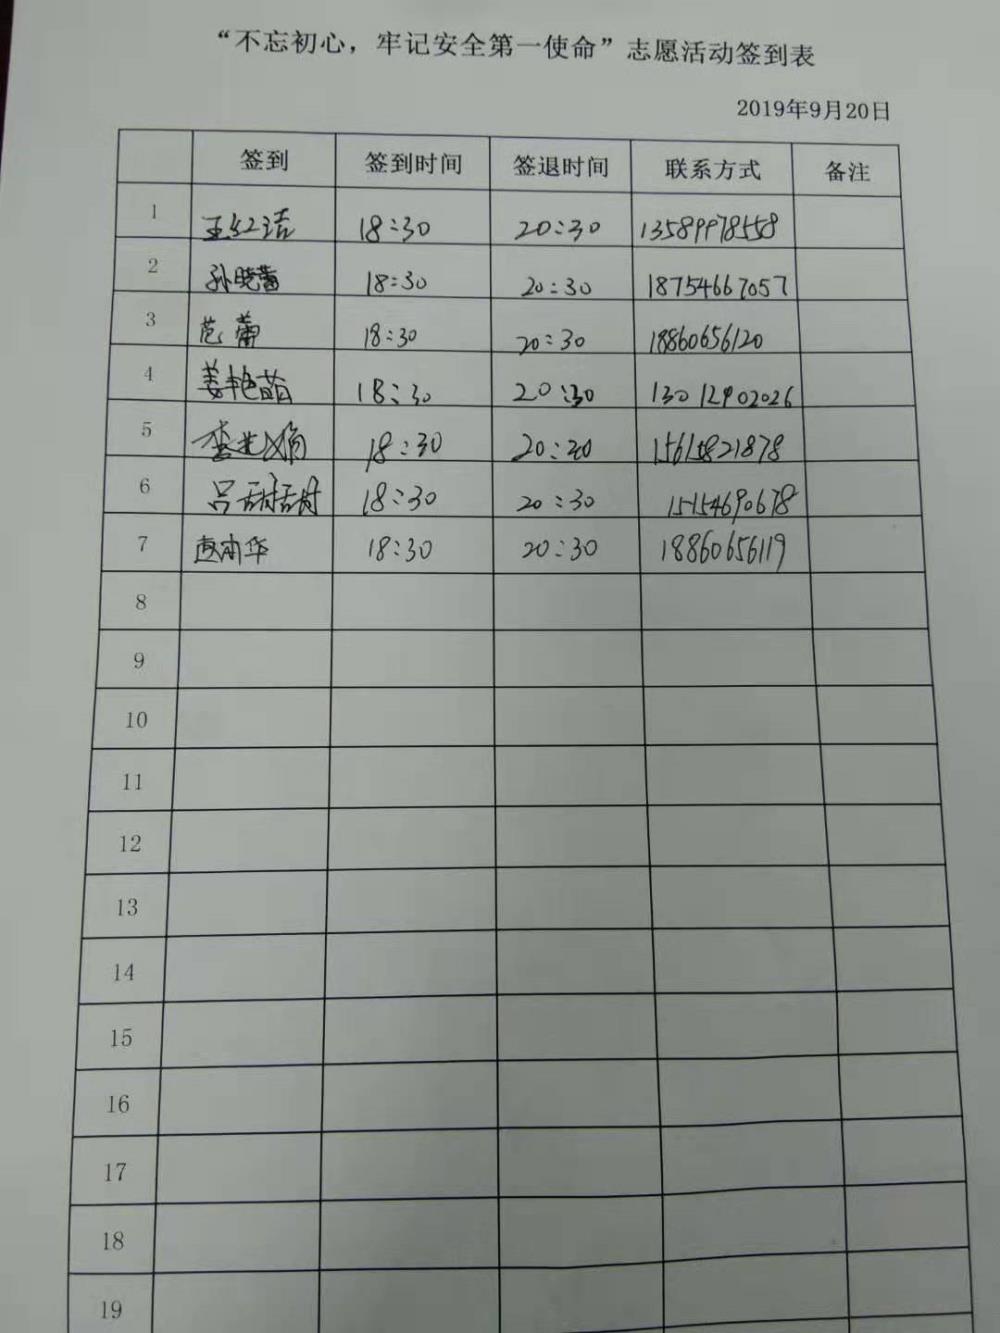 “不忘初心，牢记安全第一使命”志愿活动签到表
2019年9月20日
签到 签到时间 签退时间 联系方式 备注
1 王红洁 18:30 20:30 13589978558
2 孙晓蕾 18:30 20:30 18754667057
3 范蕾 18:30 20:30 18860656120
4 姜艳苗 18:30 20:30 13012902026
5 李 18:30 20:30
6 吕甜甜 18:30 20:30 15154690678
7 18:30 20:30 18860656119
8
9
10
11
12
13
14
15
16
17
18
19